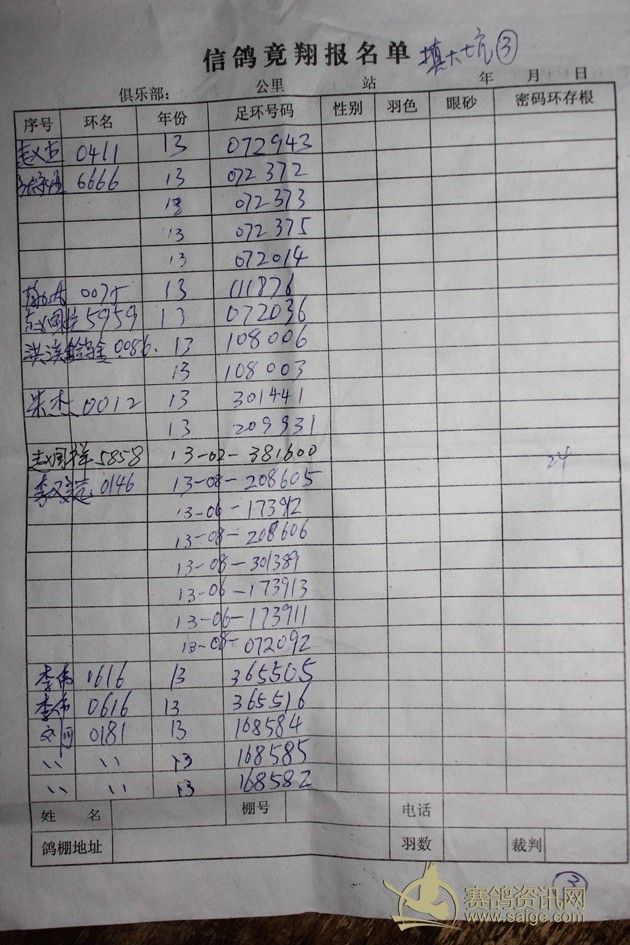 信鸽竞翔报名单 ③
俱乐部： 公里 站 年 月 日
序号 环名 年份 足环号码 性别 羽色 眼砂 密码环存根
0411 13 072943
6666 13 072372
13 072373
13 072375
13 072014
13 111876
5959 13 072036
0086. 13 108006
13 108003
朱杰 0012 13 301441
13 209931
5858 13-02-381600
24
0146 13-08-208605
13-08-208606
13-08-301389
13-06-173913
13-06-173911
13-08-072092
李伟 1616 13 365505
李伟 0616 13 365516
0181 13 168584
〃 〃 13 168585
〃 〃 13 168582
姓 名 棚号 电话
鸽棚地址 羽数 裁判
③
赛鸽资讯网
www.saige.com